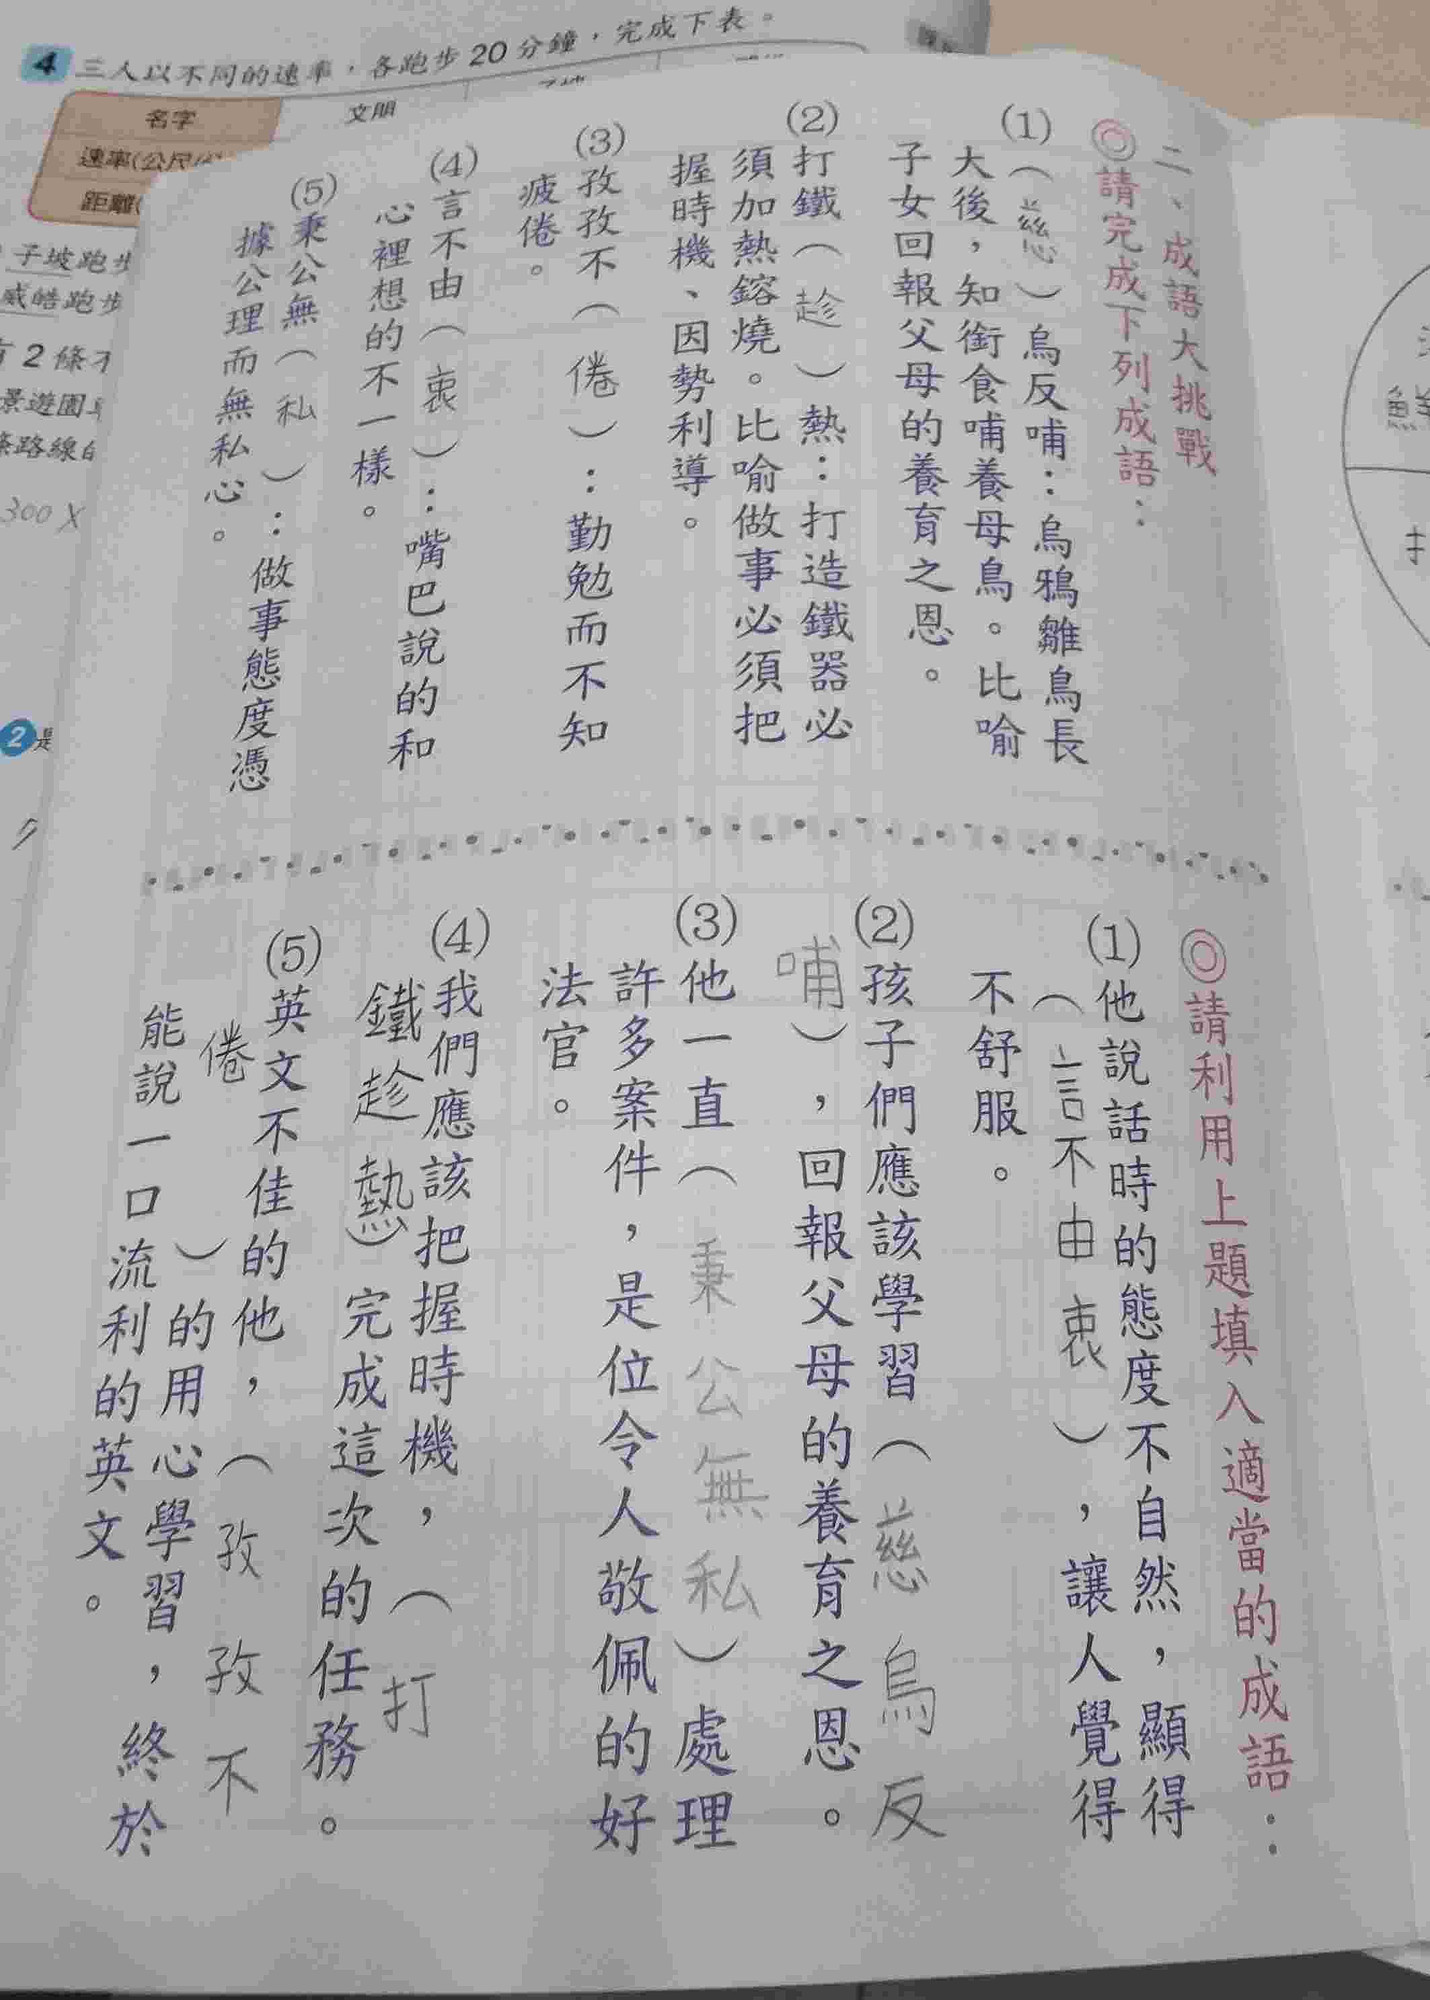 4 三人以不同的速率，各跑步20分鐘，完成下表。
名字
文朋
速率(公尺/
距離(
子坡跑步
威皓跑步
有2條不
景遊園
條路線的
300 X
2 是
二、成語大挑戰
◎請完成下列成語：
(1)（慈）烏反哺：烏鴉雛鳥長
大後，知銜食哺養母鳥。比喻
子女回報父母的養育之恩。
(2)打鐵（趁）熱：打造鐵器必
須加熱鎔燒。比喻做事必須把
握時機、因勢利導。
(3)孜孜不（倦）：勤勉而不知
疲倦。
(4)言不由（衷）：嘴巴說的和
心裡想的不一樣。
(5)秉公無（私）：做事態度憑
據公理而無私心。
◎請利用上題填入適當的成語：
(1)他說話時的態度不自然，顯得
（言不由衷），讓人覺得
不舒服。
(2)孩子們應該學習（慈烏反
哺），回報父母的養育之恩。
(3)他一直（秉公無私）處理
許多案件，是位令人敬佩的好
法官。
(4)我們應該把握時機，（打
鐵趁熱）完成這次的任務。
(5)英文不佳的他，（孜孜不
倦）的用心學習，終於
能說一口流利的英文。